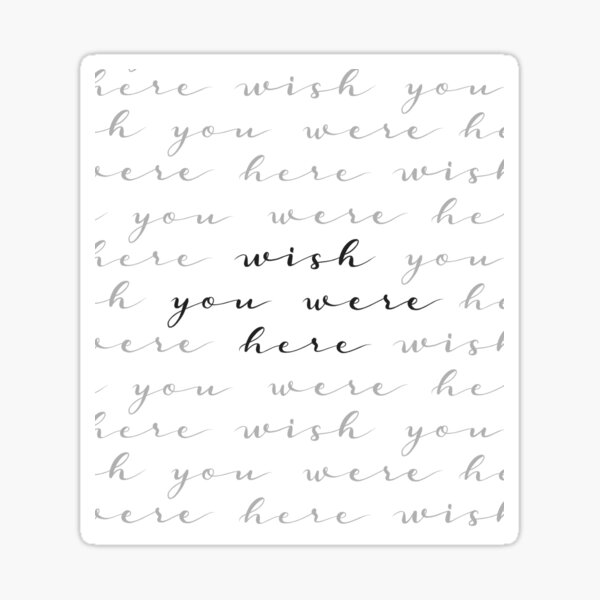 here wish you
h you were he
were here wish
you were he
here wish you
h you were he
were here wish
you were he
here wish you
h you were he
were here wish